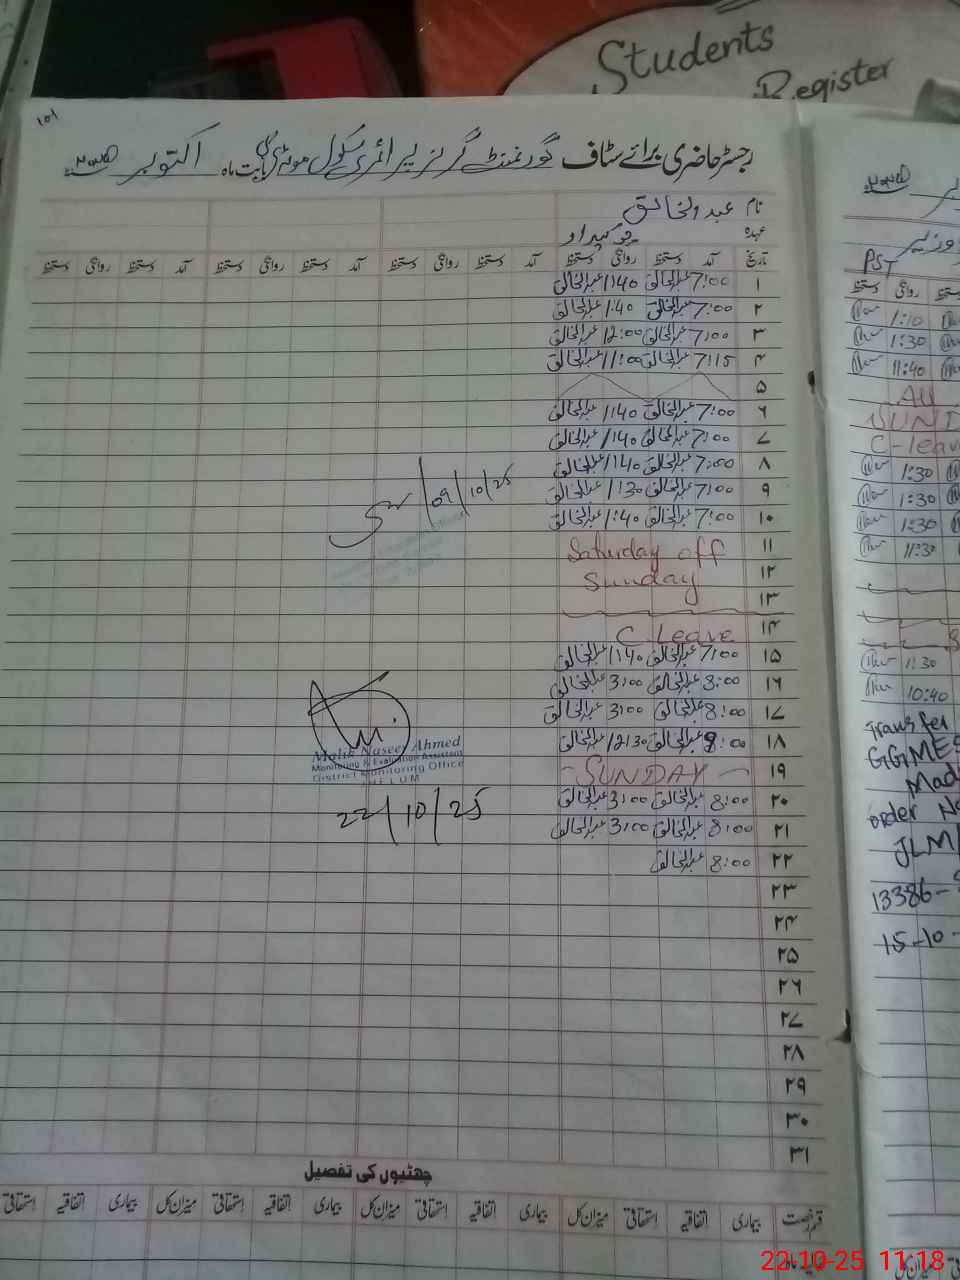 Students
Register
۱۰۱
رجسٹر حاضری برائے سٹاف گورنمنٹ گرلز پرائمری سکول بابت ماہ اکتوبر
نام عبدالخالق
عہدہ چوکیدار
تاریخ آمد دستخط روانگی دستخط آمد دستخط روانگی دستخط آمد دستخط روانگی دستخط
۱ 7:00 عبدالخالق 1:40 عبدالخالق
۲ 7:00 عبدالخالق 1:40 عبدالخالق
۳ 7:00 عبدالخالق 12:00 عبدالخالق
۴ 7:15 عبدالخالق 11:00 عبدالخالق
۵
۶ 7:00 عبدالخالق 1:40 عبدالخالق
۷ 7:00 عبدالخالق 1:40 عبدالخالق
۸ 7:00 عبدالخالق 1:40 عبدالخالق
۹ 7:00 عبدالخالق 1:30 عبدالخالق
۱۰ 7:00 عبدالخالق 1:40 عبدالخالق
09/10/25
۱۱ Saturday off
۱۲ Sunday
۱۳
۱۴ C Leave
۱۵ 7:00 عبدالخالق 1:40 عبدالخالق
۱۶ 8:00 عبدالخالق 3:00 عبدالخالق
۱۷ 8:00 عبدالخالق 3:00 عبدالخالق
۱۸ 8:00 عبدالخالق 12:30 عبدالخالق
۱۹ SUNDAY
۲۰ 8:00 عبدالخالق 3:00 عبدالخالق
۲۱ 8:00 عبدالخالق 3:00 عبدالخالق
۲۲ 8:00 عبدالخالق
۲۳
۲۴
۲۵
۲۶
۲۷
۲۸
۲۹
۳۰
۳۱
Malik Naseer Ahmed
Monitoring & Evaluation Assistant
District Monitoring Office
JHELUM
22/10/25
چھٹیوں کی تفصیل
قسم رخصت بیماری اتفاقیہ استحقاقی میزان کل بیماری اتفاقیہ استحقاقی میزان کل بیماری اتفاقیہ استحقاقی میزان کل بیماری اتفاقیہ استحقاقی
PST
دستخط روانگی
1:10
1:30
11:40
All
SUND
C-leave
1:30
1:30
1:30
11:30
1:30
10:40
Transfer
GGMES
Mad
order No
JLM/
13386-
15-10-
22-10-25 11:18